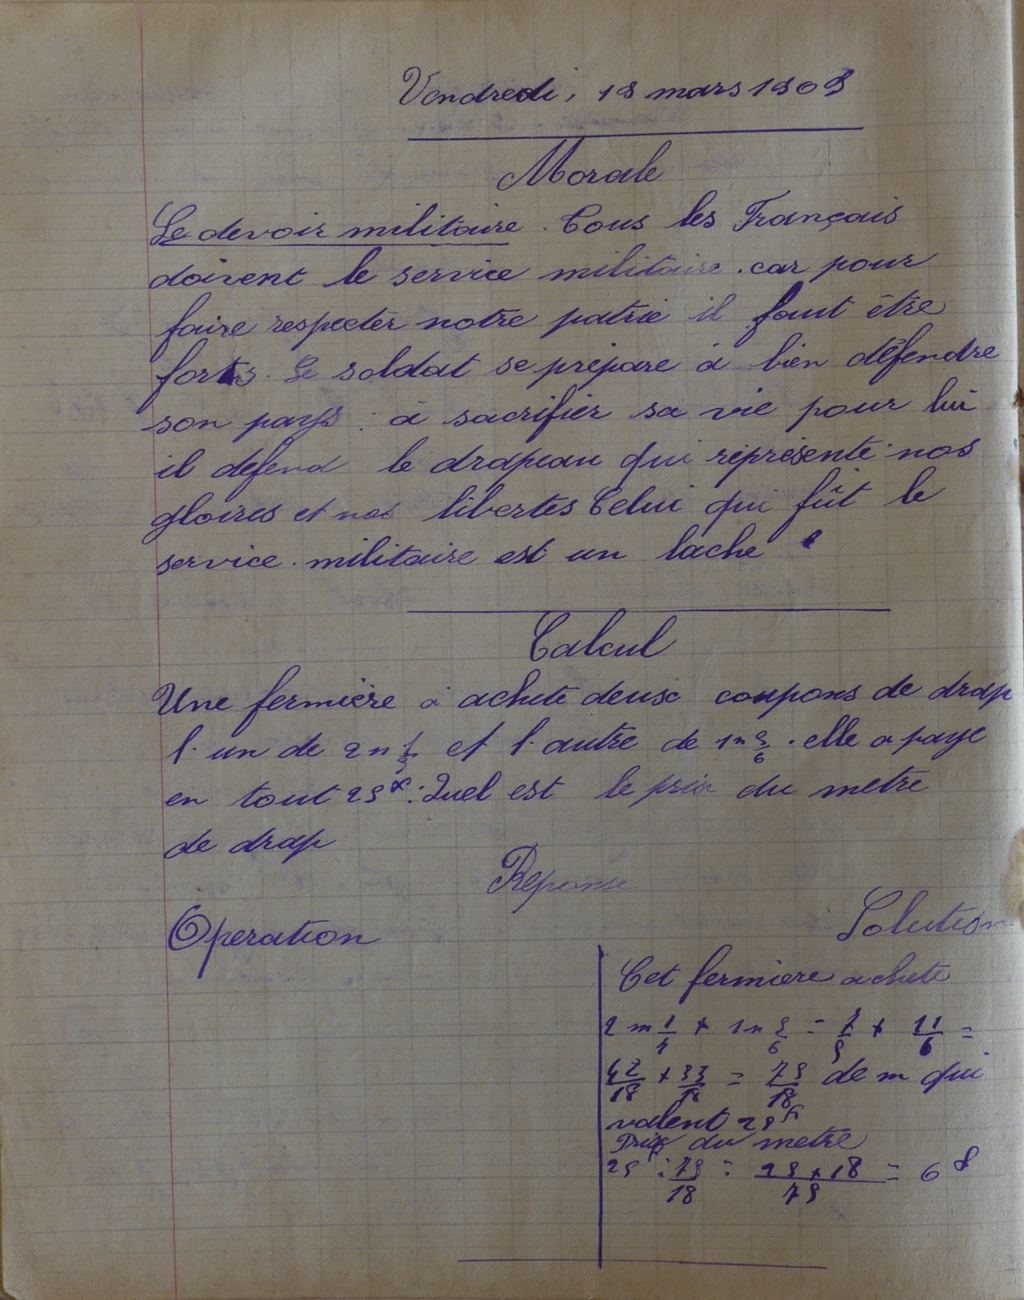 Vendredi, 19 mars 1909
Morale
Le devoir militaire. Tous les Français
doivent le service militaire. car pour
faire respecter notre patrie il faut être
forts. Le soldat se prépare à bien défendre
son pays : à sacrifier sa vie pour lui
il défend le drapeau qui réprésente nos
gloires et nos libertes Celui qui fût le
service militaire est un lache
Calcul
Une fermière a achete deux coupons de drap
l'un de 2m 1/3 et l'autre de 1m 5/6. elle a paye
en tout 25f. Quel est le prix du metre
de drap
Réponse
Opération
Solution
Cet fermiere achete
2m 1/3 + 1m 5/6 = 7/3 + 11/6 =
42/18 + 33/18 = 75/18 de m qui
valent 25f
Prix du metre
25 : 75/18 = 25 x 18 / 75 = 6f